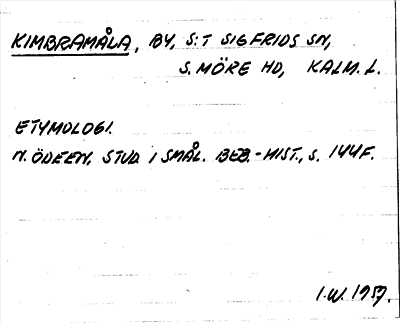 KIMBRAMÅLA, BY, S:T SIGFRIDS SN,
S. MÖRE HD, KALM. L.
ETYMOLOGI.
N. ÖDEEN, STUD. I SMÅL. BEB.-HIST., S. 144F.
I.W. 1959.